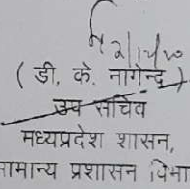 ( डी. के. नागेन्द्र )
उप सचिव
मध्यप्रदेश शासन,
सामान्य प्रशासन विभा